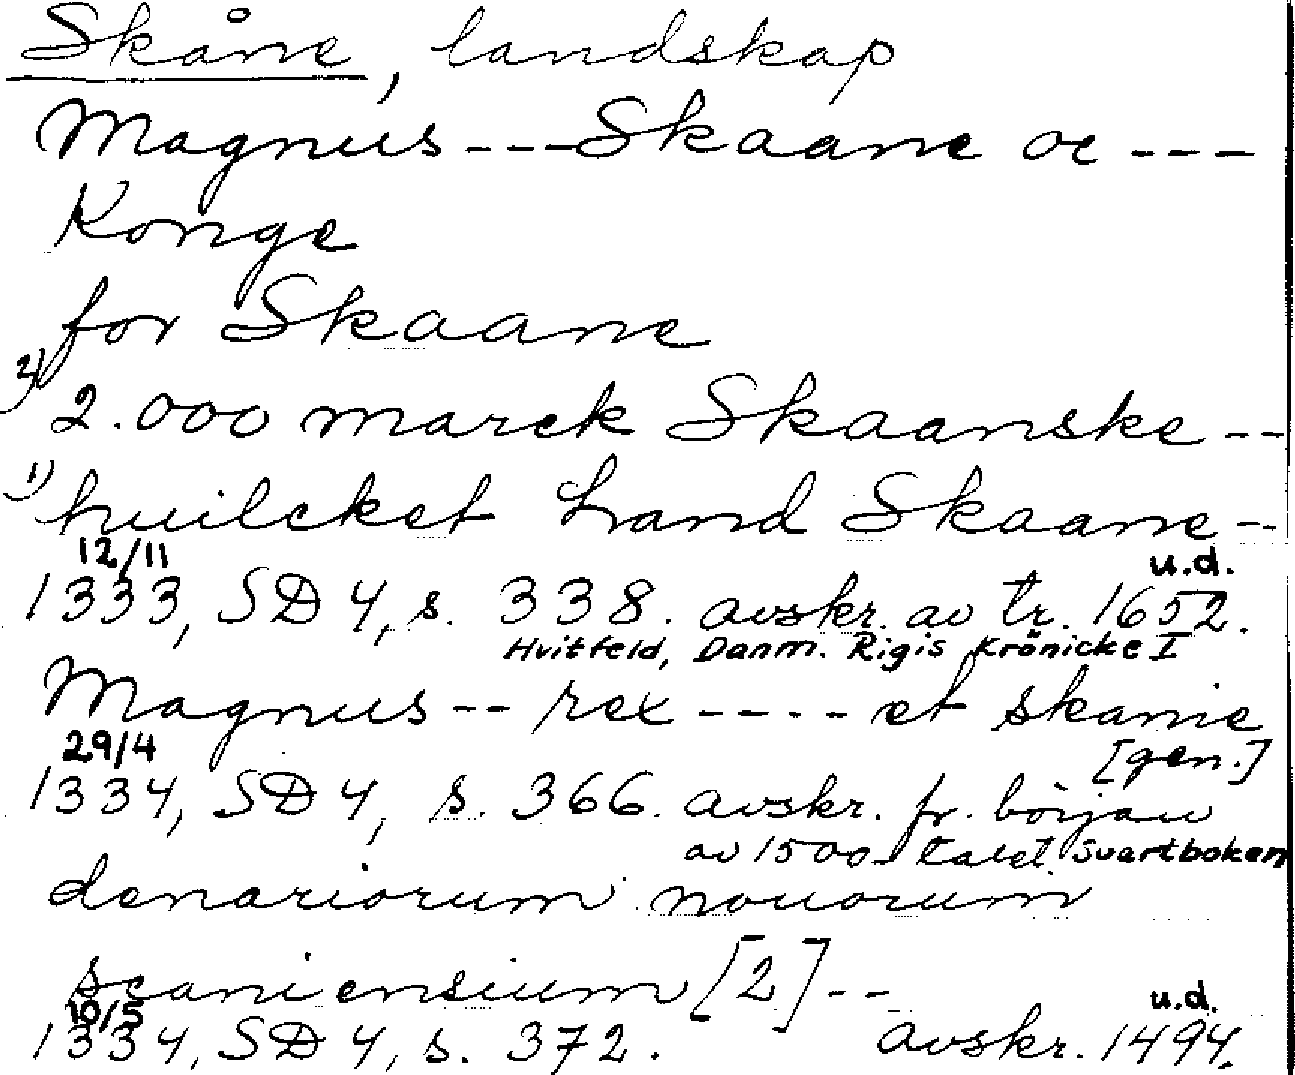 Skåne, landskap
Magnus --- Skaane oc ---
Konge
for Skaane
2) 2.000 marck Skaanske --
1) huilcket Land Skaane --
12/11 u.d.
1333, SD 4, s. 338. avskr. av tr. 1652.
Hvitfeld, Danm. Rigis Krönicke I
Magnus -- rex ---- et skanie
29/4 [gen.]
1334, SD 4, s. 366. avskr. fr. början
av 1500-talet Svartboken
denariorum nouorum
scaniensium [2] --
10/5 u.d.
1334, SD 4, s. 372. avskr. 1494.